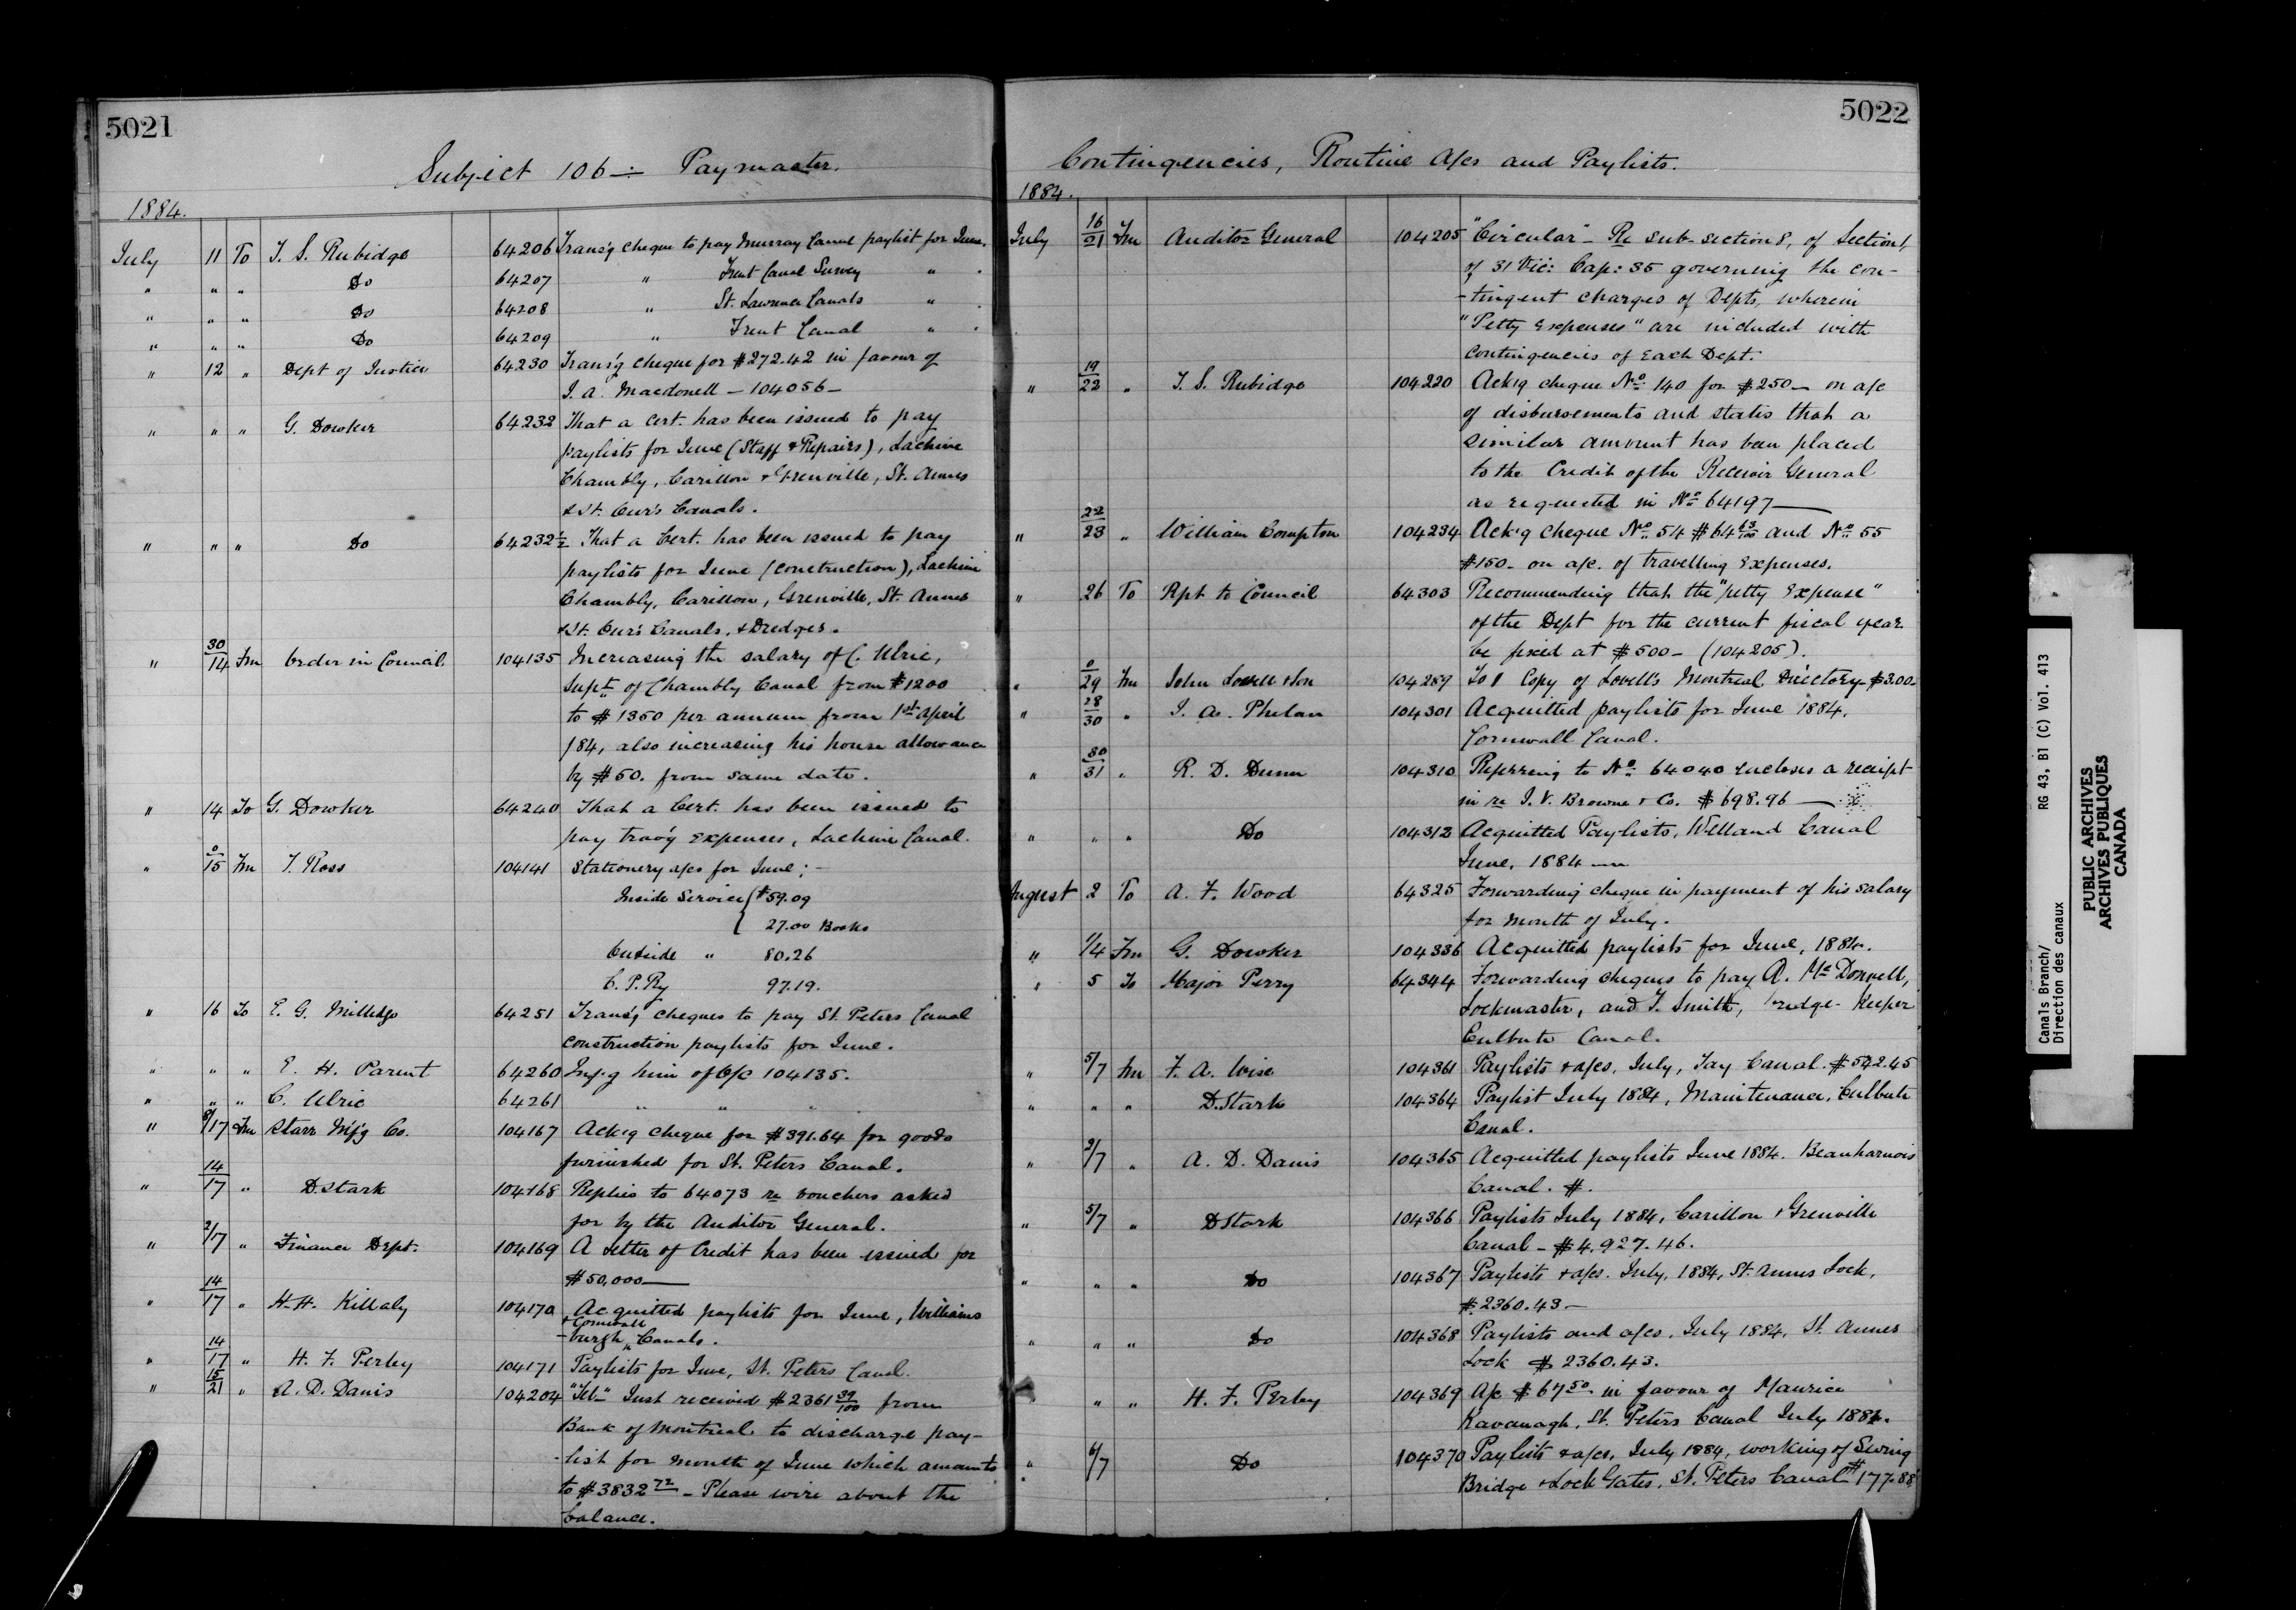 5021
Subject 106 :- Paymaster.
1884.
July 11 To T. S. Rubidge 64206 Trans'g cheque to pay Murray Canal paylist for June.
" " " Do 64207 " Trent Canal Survey " "
" " " Do 64208 " St. Lawrence Canals " "
" " " Do 64209 " Trent Canal " "
" 12 " Dept of Justice 64230 Trans'g cheque for $272.42 in favour of
J. A. Macdonell - 104056 -
" " " G. Dowker 64232 That a Cert. has been issued to pay
paylists for June (Staff & Repairs), Lachine
Chambly, Carillon & Grenville, St. Annes
& St. Our's Canals.
" " " Do 64232½ That a Cert. has been issued to pay
paylists for June (construction), Lachine
Chambly, Carillon, Grenville, St. Annes
& St. Our's Canals, & Dredges.
" 30/14 Fm Order in Council 104135 Increasing the salary of C. Ulric,
Supt of Chambly Canal from $1200
to $1350 per annum from 1st April
/84, also increasing his house allowance
by $50. from same date.
" 14 To G. Dowker 64240 That a Cert. has been issued to
pay trav'g expenses, Lachine Canal.
" 0/15 Fm T. Ross 104141 Stationery a/cs for June; -
Inside Service { $59.09
27.00 Books
Outside " 80.26
C. P. Ry 97.19.
" 16 To E. G. Milledge 64251 Trans'g cheques to pay St. Peters Canal
construction paylists for June.
" " " E. H. Parent 64260 Inf'g him of O/C 104135.
" " " C. Ulric 64261 " " " "
" 8/17 Fm Starr Mf'g Co. 104167 Ack'g cheque for $391.64 for goods
furnished for St. Peters Canal.
" 14/17 " D. Stark 104168 Replies to 64073 re vouchers asked
for by the Auditor General.
" 2/17 " Finance Dept. 104169 A Letter of Credit has been issued for
$50,000 —
" 14/17 " H. H. Killaly 104170 Acquitted paylists for June, Williams
& Cornwall
-burgh Canals.
" 14/17 " H. F. Perley 104171 Paylists for June, St. Peters Canal.
" 15/21 " A. D. Danis 104204 "Tel." Just received $2361 39/100 from
Bank of Montreal to discharge pay-
-list for month of June which amounts
to $3832 72 - Please wire about the
balance.
5022
Contingencies, Routine A/cs and Paylists.
1884.
July 16/21 Fm Auditor General 104205 "Circular" - Re sub-section 8, of Section 1,
of 31 Vic: Cap: 35 governing the con-
-tingent charges of Depts, wherein
"Petty Expenses" are included with
contingencies of each Dept.
" 19/22 " T. S. Rubidge 104220 Ack'g cheque No. 140 for $250 - on a/c
of disbursements and states that a
similar amount has been placed
to the Credit of the Receiver General
as requested in No. 64197 —
" 22/23 " William Compton 104234 Ack'g cheque No. 54 $64 63/100 and No. 55
$150 - on a/c. of travelling expenses.
" 26 To Rpt to Council 64303 Recommending that the "petty Expense"
of the Dept for the current fiscal year
be fixed at $500 - (104205).
" 0/29 Fm John Lovell & Son 104289 To 1 Copy of Lovell's Montreal Directory - $3.00 -
" 28/30 " J. A. Phelan 104301 Acquitted paylists for June 1884.
Cornwall Canal.
" 30/31 " R. D. Dunn 104310 Referring to No. 64040 encloses a receipt
in re J. V. Browne & Co. $698.96 —
" " " Do 104312 Acquitted Paylists, Welland Canal
June, 1884 —
August 2 To A. F. Wood 64325 Forwarding cheque in payment of his salary
for month of July.
" 1/4 Fm G. Dowker 104336 Acquitted paylists for June, 1884.
" 5 To Major Perry 64344 Forwarding cheques to pay A. McDonnell,
Lockmaster, and T. Smith, ridge-keeper
Culbute Canal.
" 5/7 Fm F. A. Wise 104361 Paylists & a/cs, July, Tay Canal. $542.45
" " " D. Stark 104364 Paylist July 1884, Maintenance, Culbute
Canal.
" 2/7 " A. D. Danis 104365 Acquitted paylists June 1884. Beauharnois
Canal. #.
" 5/7 " D Stark 104366 Paylists July 1884, Carillon & Grenville
Canal - $4,927.46.
" " " Do 104367 Paylists & a/cs. July, 1884, St. Annes Lock,
$2360.43 -
" " " Do 104368 Paylists and a/cs, July 1884, St. Annes
Lock $2360.43.
" " H. F. Perley 104369 A/c $67 50 in favour of Maurice
Kavanagh, St. Peters Canal July 1884.
" 6/7 Do 104370 Paylists & a/cs, July 1884, working of Swing
Bridge & Lock Gates, St. Peters Canal $177.88
Canals Branch/ RG 43, B1 (C) Vol. 413
Direction des canaux
PUBLIC ARCHIVES
ARCHIVES PUBLIQUES
CANADA